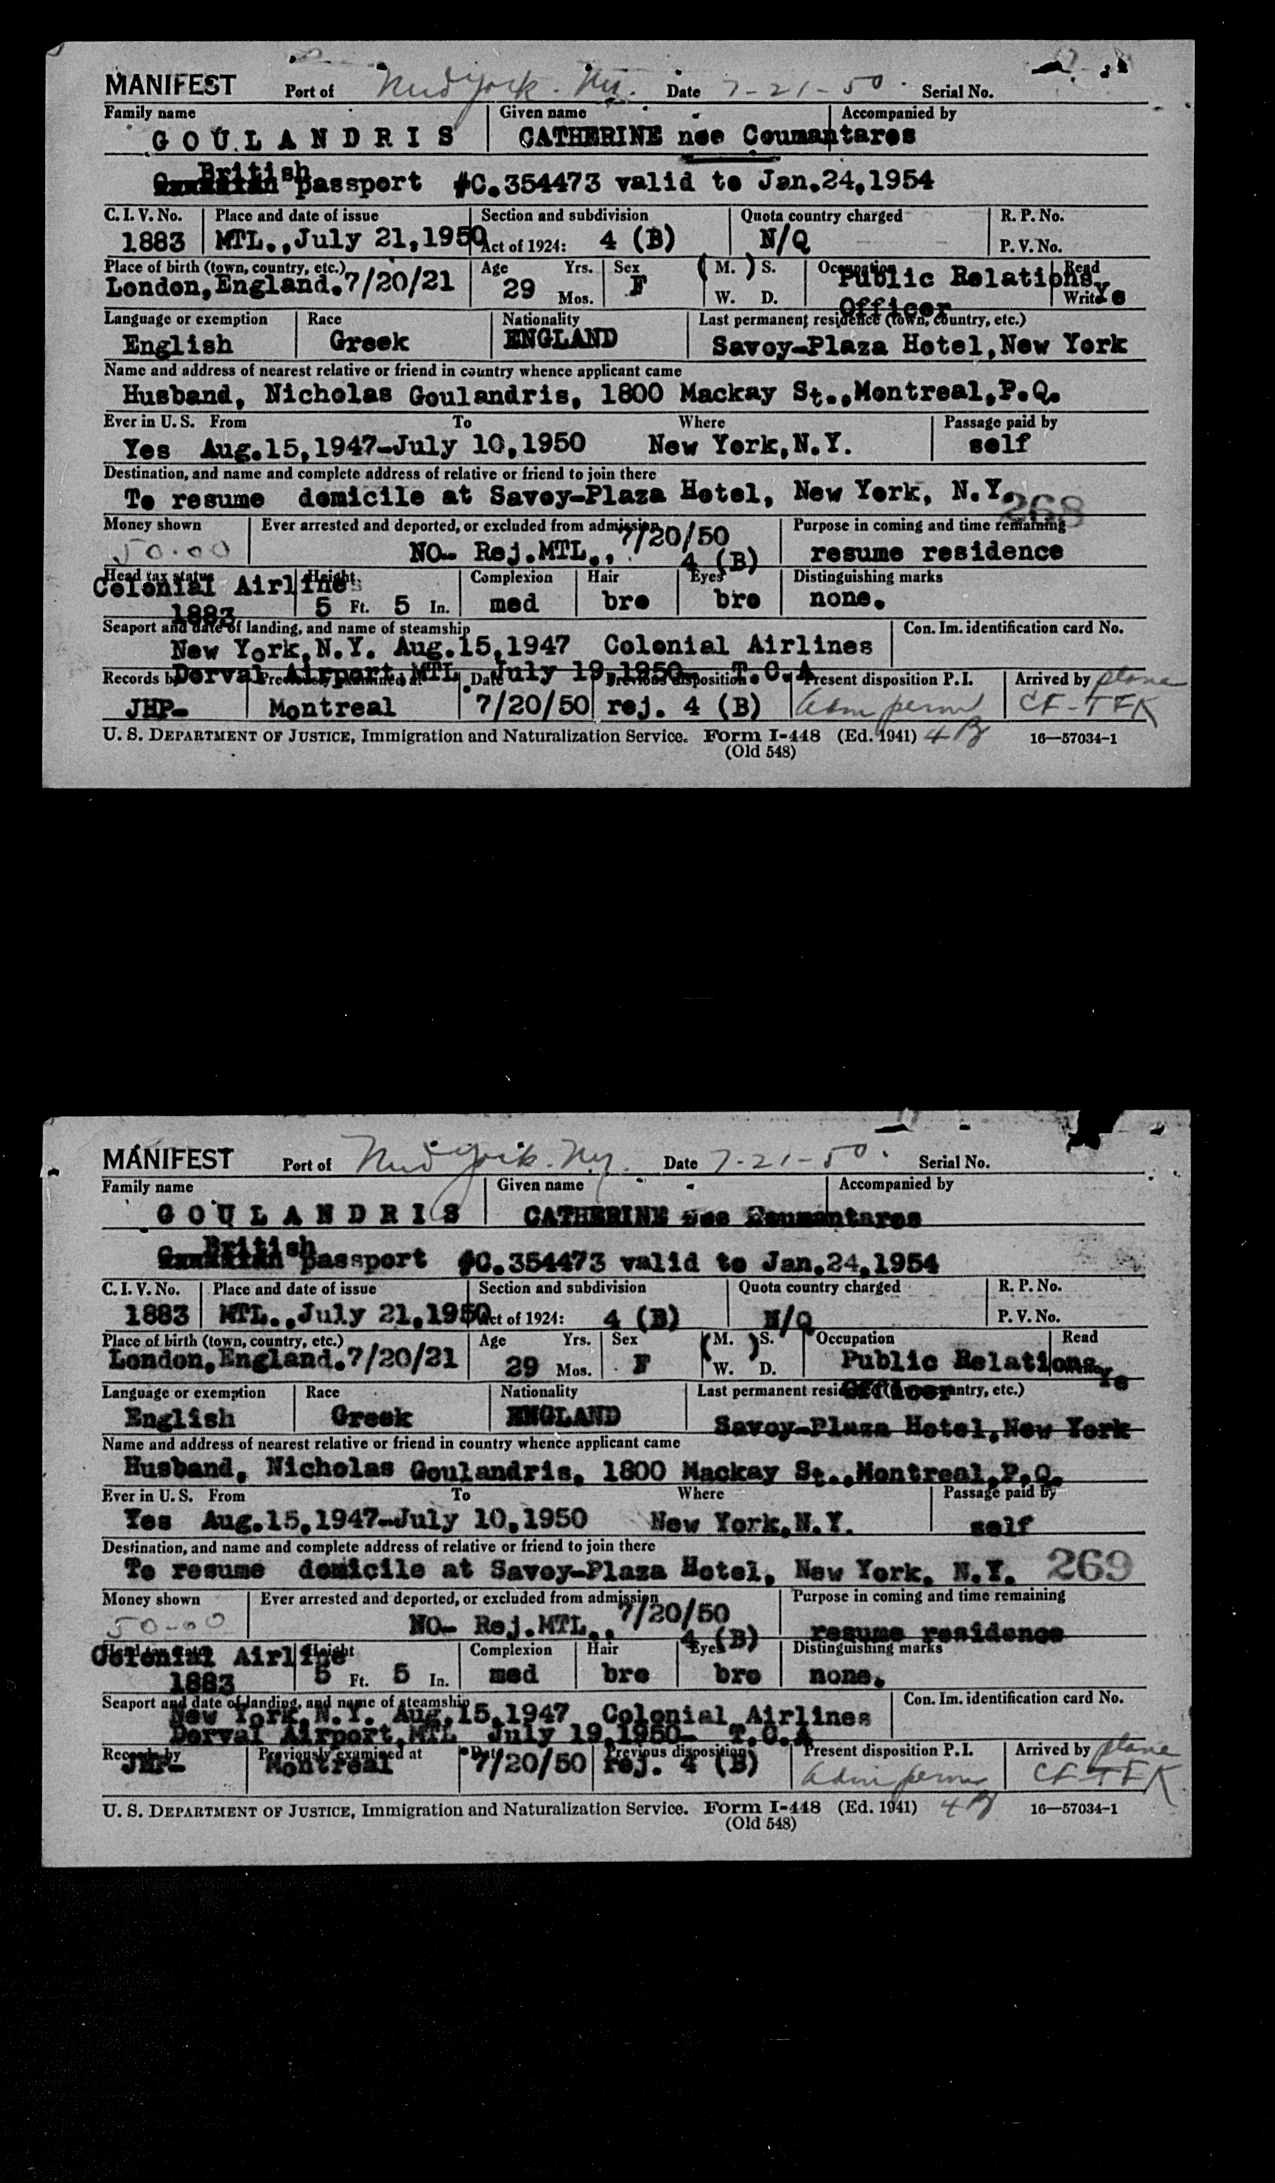 MANIFEST Port of New York. Ny. Date 7-21-50 Serial No.
Family name Given name Accompanied by
GOULANDRIS CATHERINE nee Coumantaros
British passport #C.354473 valid to Jan.24,1954
C. I. V. No. Place and date of issue Section and subdivision Quota country charged R. P. No.
1883 MTL.,July 21,1950 Act of 1924: 4 (B) N/Q P. V. No.
Place of birth (town, country, etc.) Age Yrs. Sex M. S. Occupation Read
London,England.7/20/21 29 Mos. F W. D. Public Relations Officer Write Ye
Language or exemption Race Nationality Last permanent residence (town, country, etc.)
English Greek ENGLAND Savoy-Plaza Hotel,New York
Name and address of nearest relative or friend in country whence applicant came
Husband, Nicholas Goulandris, 1800 Mackay St.,Montreal,P.Q.
Ever in U. S. From To Where Passage paid by
Yes Aug.15,1947-July 10,1950 New York,N.Y. self
Destination, and name and complete address of relative or friend to join there
To resume domicile at Savoy-Plaza Hotel, New York, N.Y.
268
Money shown Ever arrested and deported, or excluded from admission Purpose in coming and time remaining
50.00 NO- Rej.MTL., 7/20/50 4 (B) resume residence
Head tax status Height Complexion Hair Eyes Distinguishing marks
Colonial Airlines 1883 5 Ft. 5 In. med bro bro none.
Seaport and date of landing, and name of steamship Con. Im. identification card No.
New York,N.Y. Aug.15,1947 Colonial Airlines
Dorval Airport,MTL. July 19,1950- T.C.A
Records by Previously examined at Date Previous disposition Present disposition P. I. Arrived by plane
JHP- Montreal 7/20/50 rej. 4 (B) adm perm 4B CF-TFK
U. S. DEPARTMENT OF JUSTICE, Immigration and Naturalization Service. Form I-448 (Ed. 1941) 16—57034-1
(Old 548)
MANIFEST Port of New York. Ny. Date 7-21-50. Serial No.
Family name Given name Accompanied by
GOULANDRIS CATHERINE nee Coumantaros
British passport #C.354473 valid to Jan.24,1954
C. I. V. No. Place and date of issue Section and subdivision Quota country charged R. P. No.
1883 MTL.,July 21,1950 Act of 1924: 4 (B) N/Q P. V. No.
Place of birth (town, country, etc.) Age Yrs. Sex M. S. Occupation Read
London,England.7/20/21 29 Mos. F W. D. Public Relations Officer Ye
Language or exemption Race Nationality Last permanent residence (town, country, etc.)
English Greek ENGLAND Savoy-Plaza Hotel,New York
Name and address of nearest relative or friend in country whence applicant came
Husband, Nicholas Goulandris, 1800 Mackay St.,Montreal,P.Q.
Ever in U. S. From To Where Passage paid by
Yes Aug.15,1947-July 10,1950 New York,N.Y. self
Destination, and name and complete address of relative or friend to join there
To resume domicile at Savoy-Plaza Hotel, New York, N.Y. 269
Money shown Ever arrested and deported, or excluded from admission Purpose in coming and time remaining
50-00 NO- Rej.MTL., 7/20/50 4 (B) resume residence
Height Complexion Hair Eyes Distinguishing marks
Colonial Airline 1883 5 Ft. 5 In. med bro bro none.
Seaport and date of landing, and name of steamship Con. Im. identification card No.
New York,N.Y. Aug.15,1947 Colonial Airlines
Dorval Airport,MTL July 19,1950- T.C.A
Records by Previously examined at Date Previous disposition Present disposition P. I. Arrived by plane
JHP- Montreal 7/20/50 rej. 4 (B) adm perm 4B CF-TFK
U. S. DEPARTMENT OF JUSTICE, Immigration and Naturalization Service. Form I-448 (Ed. 1941) 16—57034-1
(Old 548)